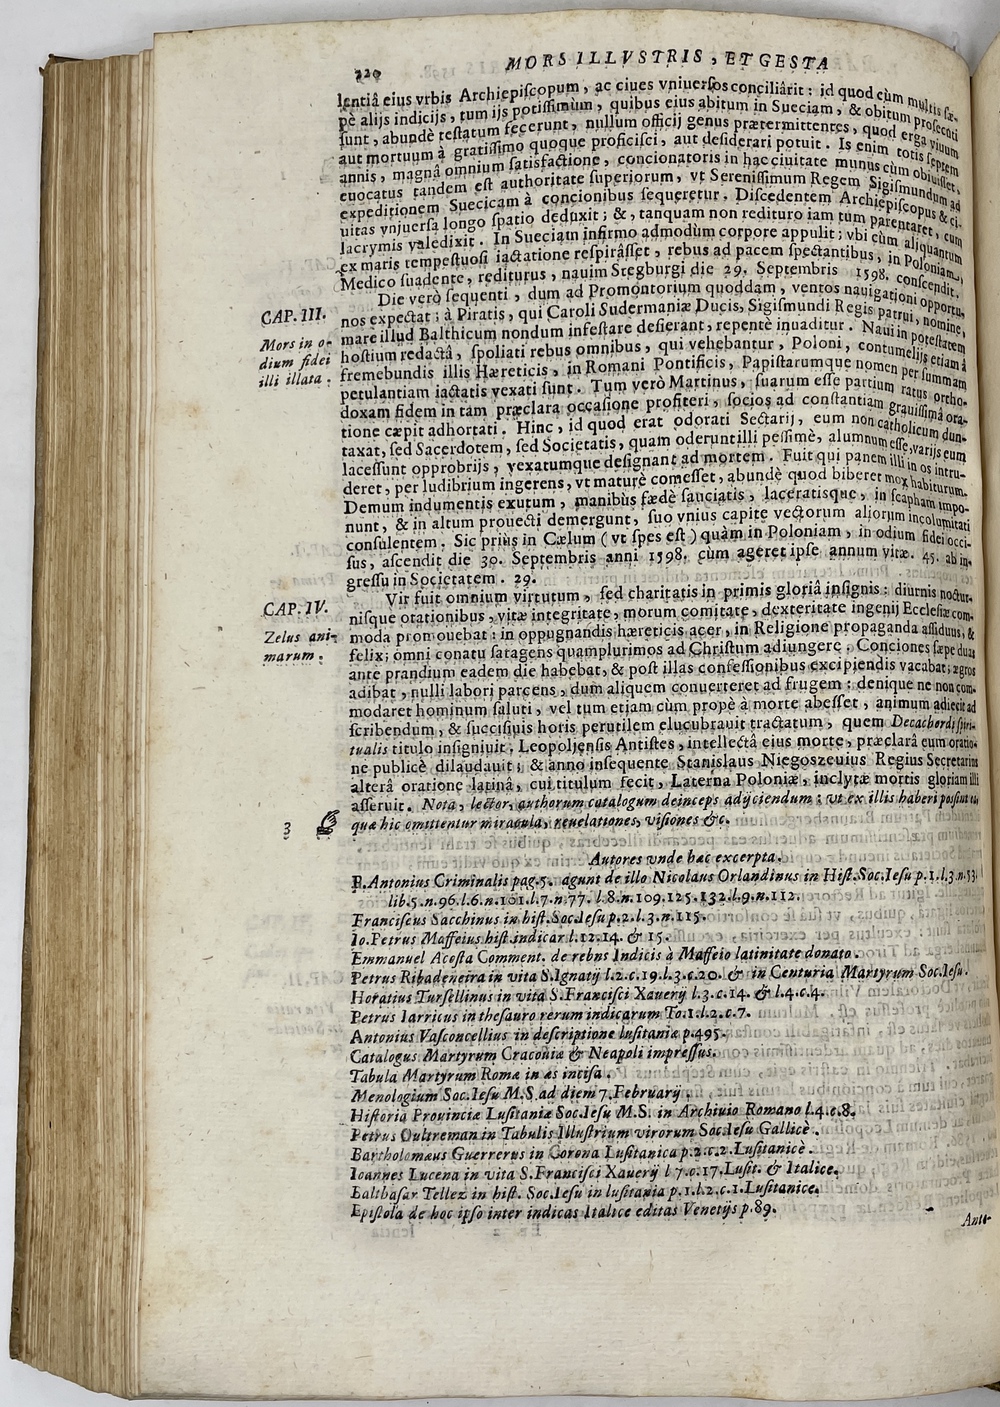 220
MORS ILLVSTRIS, ET GESTA
lentiâ eius vrbis Archiepiscopum, ac ciues vniuersos conciliârit: id quod cùm multis sæ-
pè alijs indicijs, tum ijs potissimùm, quibus eius abitum in Sueciam, & obitum prosecuti
sunt, abundè testatum fecerunt, nullum officij genus prætermittentes, quod erga viuum
aut mortuum à gratissimo quoque proficisci, aut desiderari potuit. Is enim totis septem
annis, magnâ omnium satisfactione, concionatoris in hac ciuitate munus cùm obiuisset,
euocatus tandem est authoritate superiorum, vt Serenissimum Regem Sigismundum ad
expeditionem Suecicam à concionibus sequeretur. Discedentem Archiepiscopus & ci-
uitas vniuersa longo spatio deduxit; &, tanquam non redituro iam tum parentaret, cum
lacrymis valedixit. In Sueciam infirmo admodùm corpore appulit; vbi cùm aliquantum
ex maris tempestuosi iactatione respirâsset, rebus ad pacem spectantibus, in Poloniam,
Medico suadente, rediturus, nauim Stegburgi die 29. Septembris 1598. conscendit.
CAP. III.
Mors in o-
dium fidei
illi illata.
Die verò sequenti, dum ad Promontorium quoddam, ventos nauigationi opportu-
nos expectat: à Piratis, qui Caroli Sudermaniæ Ducis, Sigismundi Regis patrui, nomine,
mare illud Balthicum nondum infestare desierant, repentè inuaditur. Naui in potestatem
hostium redactâ, spoliati rebus omnibus, qui vehebantur, Poloni, contumelijs etiam à
fremebundis illis Hæreticis, in Romani Pontificis, Papistarumque nomen per summam
petulantiam iactatis vexati sunt. Tum verò Martinus, suarum esse partium ratus ortho-
doxam fidem in tam præclara occasione profiteri, socios ad constantiam grauissimâ ora-
tione cæpit adhortari. Hinc, id quod erat odorati Sectarij, eum non catholicum dun-
taxat, sed Sacerdotem, sed Societatis, quam oderunt illi pessimè, alumnum esse, varijs eum
lacessunt opprobrijs, vexatumque designant ad mortem. Fuit qui panem illi in os intru-
deret, per ludibrium ingerens, vt maturè comesset, abundè quod biberet mox habiturum.
Demum indumentis exutum, manibùs fædè sauciatis, laceratisque, in scapham impo-
nunt, & in altum prouecti demergunt, suo vnius capite vectorum aliorum incolumitati
consulentem. Sic priùs in Cælum (vt spes est) quàm in Poloniam, in odium fidei occi-
sus, ascendit die 30. Septembris anni 1598. cùm ageret ipse annum vitæ. 45. ab in-
gressu in Societatem. 29.
CAP. IV.
Zelus ani-
marum.
Vir fuit omnium virtutum, sed charitatis in primis gloriâ insignis: diurnis noctur-
nisque orationibus, vitæ integritate, morum comitate, dexteritate ingenij Ecclesiæ com-
moda promouebat: in oppugnandis hæreticis acer, in Religione propaganda assiduus, &
felix; omni conatu satagens quamplurimos ad Christum adiungere. Conciones sæpe duas
ante prandium eadem die habebat, & post illas confessionibus excipiendis vacabat; ægros
adibat, nulli labori parcens, dum aliquem conuerteret ad frugem: denique ne non com-
modaret hominum saluti, vel tum etiam cùm propè à morte abesset, animum adiecit ad
scribendum, & succisiuis horis perutilem elucubrauit tractatum, quem Decachordi spiri-
tualis titulo insigniuit. Leopoliensis Antistes, intellectâ eius morte, præclarâ eum oratio-
ne publicè dilaudauit; & anno insequente Stanislaus Niegoszeuius Regius Secretarius
alterâ oratione latinâ, cui titulum fecit, Laterna Poloniæ, inclytæ mortis gloriam illi
asseruit. Nota, lector, authorum catalogum deinceps adijciendum: vt ex illis haberi possint ea
3
quæ hic omittentur miracula, reuelationes, visiones &c.
Autores vnde hæc excerpta.
B. Antonius Criminalis pag. 5. agunt de illo Nicolaus Orlandinus in Hist. Soc. Iesu p. 1. l. 3. n. 53.
lib. 5. n. 96. l. 6. n. 101. l. 7. n. 77. l. 8. n. 109. 125. 132. l. 9. n. 112.
Franciscus Sacchinus in hist. Soc. Iesu p. 2. l. 3. n. 115.
Io. Petrus Maffeius hist. indicar l. 12. 14. & 15.
Emmanuel Acesta Comment. de rebus Indicis à Maffeio latinitate donato.
Petrus Ribadeneira in vita S. Ignatij l. 2. c. 19. l. 3. c. 20. & in Centuria Martyrum Soc. Iesu.
Horatius Tursellinus in vitâ S. Francisci Xauerij l. 3. c. 14. & l. 4. c. 4.
Petrus Iarricus in thesauro rerum indicarum To. 1. l. 2. c. 7.
Antonius Vasconcellius in descriptione lusitaniæ p. 495.
Catalogus Martyrum Cracouiæ & Neapoli impressus.
Tabula Martyrum Romæ in æs incisa.
Menologium Soc. Iesu M.S. ad diem 7. Februarij.
Historia Prouinciæ Lusitaniæ Soc. Iesu M.S. in Archiuio Romano l. 4. c. 8.
Petrus Oultreman in Tabulis Illustrium virorum Soc. Iesu Gallicè.
Bartholomæus Guerrerus in Corona Lusitanica p. 2. c. 2. Lusitanicè.
Ioannes Lucena in vita S. Francisci Xauerij l 7. c. 17. Lusit. & Italice.
Balthasar Tellez in hist. Soc. Iesu in lusitania p. 1. l. 2. c. 1. Lusitanice.
Epistola de hoc ipso inter indicas Italice editas Venetijs p. 89.
Anto-